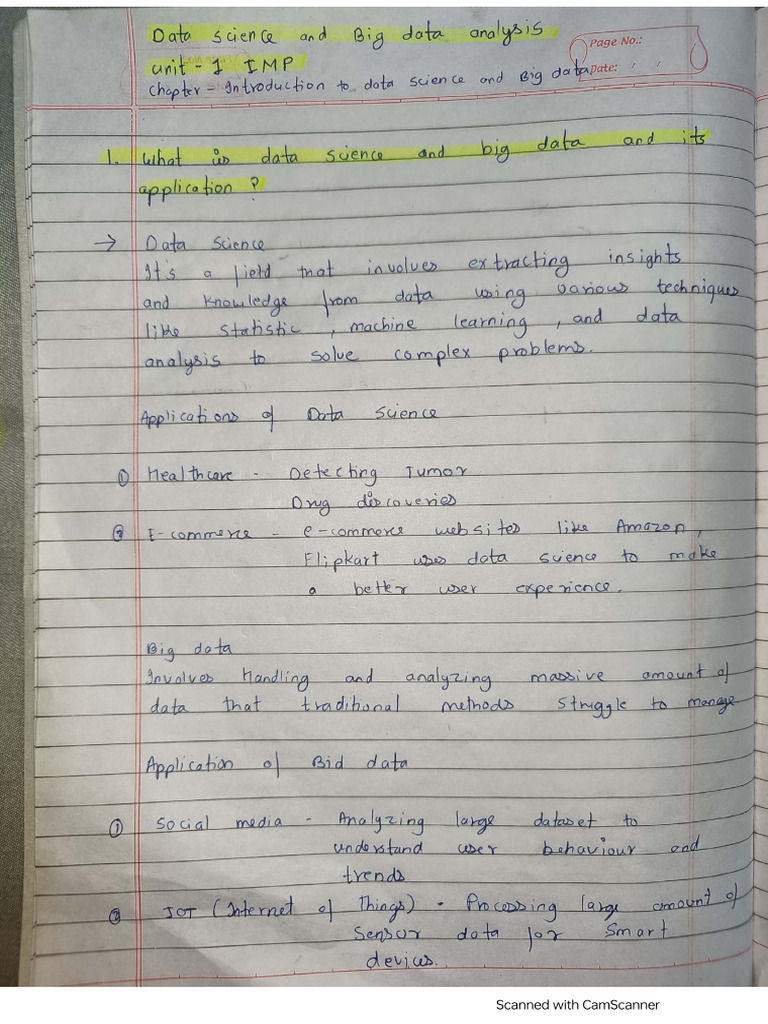 Data science and Big data analysis
Page No.:
unit - 1 IMP
Date: , ,
Chapter - Introduction to data science and Big data
1. What is data science and big data and its
application ?
→ Data Science
It's a field that involves extracting insights
and knowledge from data using various techniques
like statistic , machine learning , and data
analysis to solve complex problems.
Applications of Data Science
① Healthcare - Detecting Tumor
Drug discoveries
② E-commerce - e-commerce websites like Amazon,
Flipkart uses data science to make
a better user experience.
Big data
Involves Handling and analyzing massive amount of
data that traditional methods struggle to manage
Application of Bid data
① Social media - Analyzing large dataset to
understand user behaviour and
trends
② IOT (Internet of Things) - Processing large amount of
Sensor data for Smart
devices.
Scanned with CamScanner